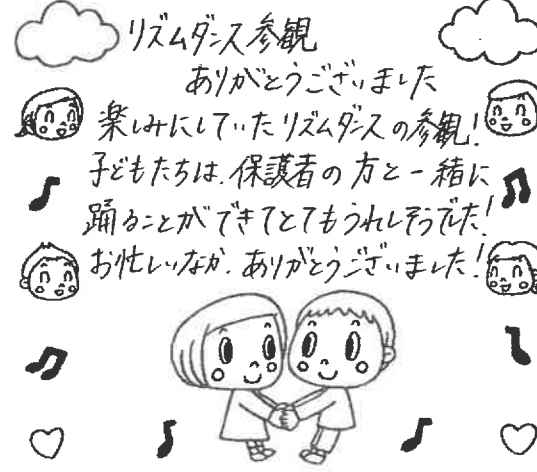 リズムダンス参観
ありがとうございました
楽しみにしていたリズムダンスの参観!
子どもたちは、保護者の方と一緒に
踊ることができてとてもうれしそうでした!
お忙しいなか、ありがとうございました!